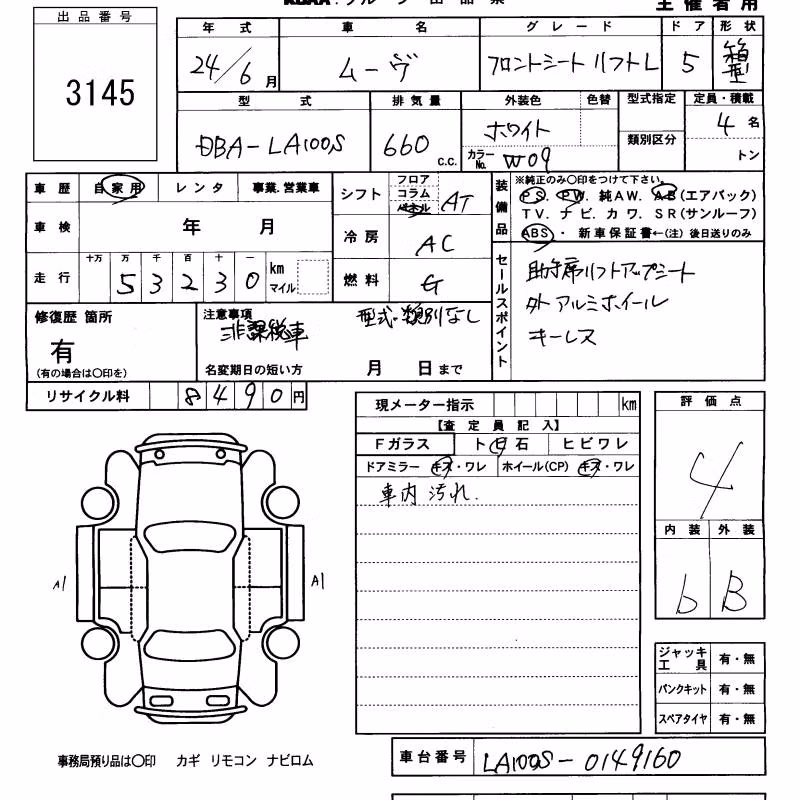 出品番号
3145
主催者用
年式 車名 グレード ドア 形状
24/6月 ムーヴ フロントシートリフトL 5 箱型
型式 排気量 外装色 色替 型式指定 定員・積載
DBA-LA100S 660 c.c. ホワイト 類別区分 4名
カラーNo. W09 トン
車歴 自家用 レンタ 事業.営業車
シフト フロア コラム パネル AT
装備品 ※純正のみ○印をつけて下さい。
PS. PW. 純AW. AB(エアバック)
TV. ナビ. カワ. SR(サンルーフ)
ABS・新車保証書←(注)後日送りのみ
車検 年 月
冷房 AC
走行 十万 万 千 百 十 一
53230 km マイル
燃料 G
セールスポイント 助手席リフトアップシート
外アルミホイール
キーレス
修復歴 箇所
有
(有の場合は○印を)
注意事項 型式・類別なし
非課税車
名変期日の短い方 月 日まで
リサイクル料 8490円
現メーター指示 km
【査定員記入】
Fガラス ト日石 ヒビワレ
ドアミラー キズ・ワレ ホイール(CP) キズ・ワレ
車内汚れ.
評価点
4
内装 外装
b B
A1 A1
ジャッキ工具 有・無
パンクキット 有・無
スペアタイヤ 有・無
事務局預り品は○印 カギ リモコン ナビロム
車台番号 LA100S-0149160